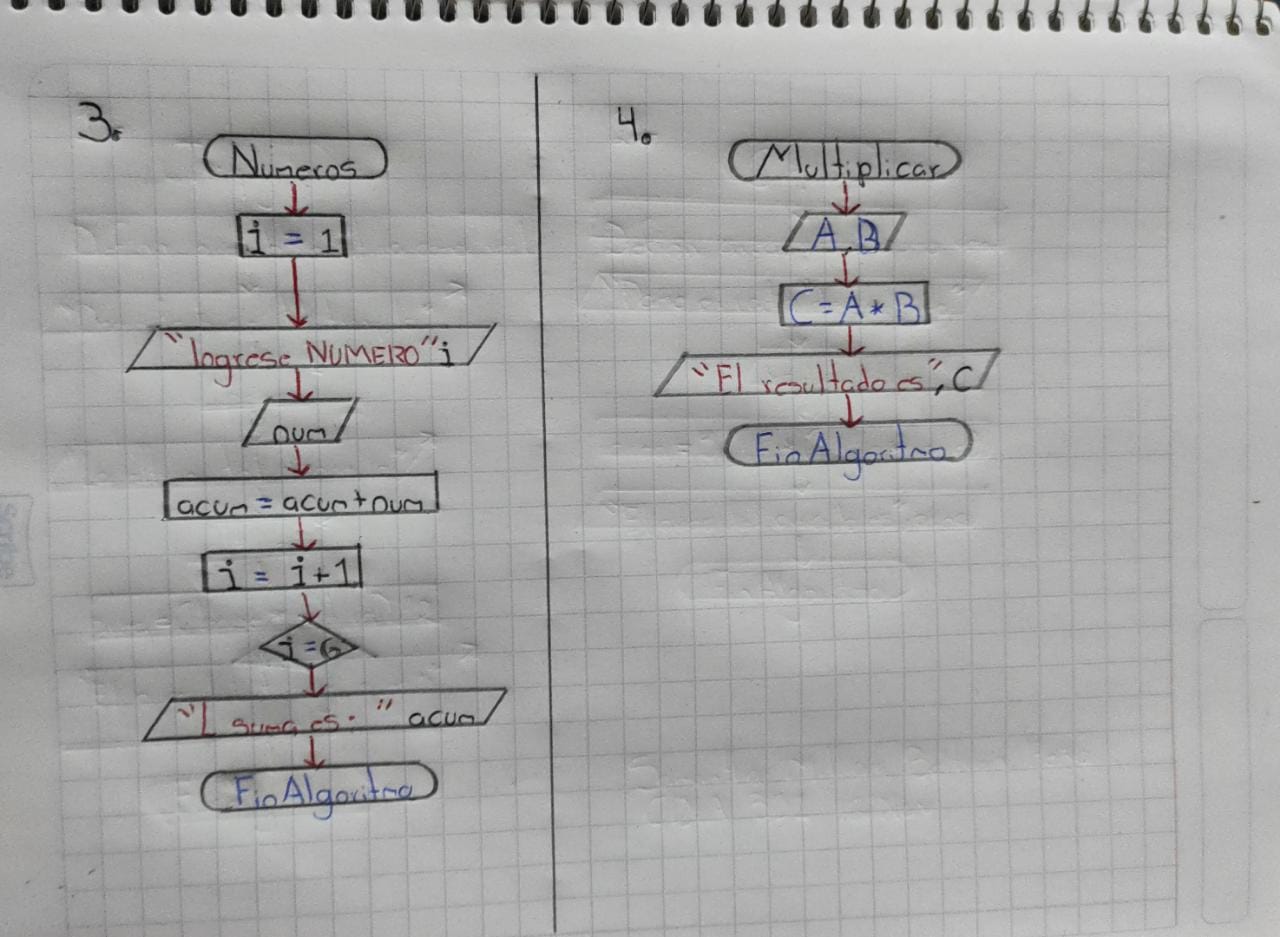 3.
Numeros
i = 1
"Ingrese NUMERO" i
num
acum = acum + num
i = i+1
i = 6
"L suma es. " acum
Fin Algoritmo
4.
Multiplicar
A, B
C = A * B
"El resultado es", C
Fin Algoritmo